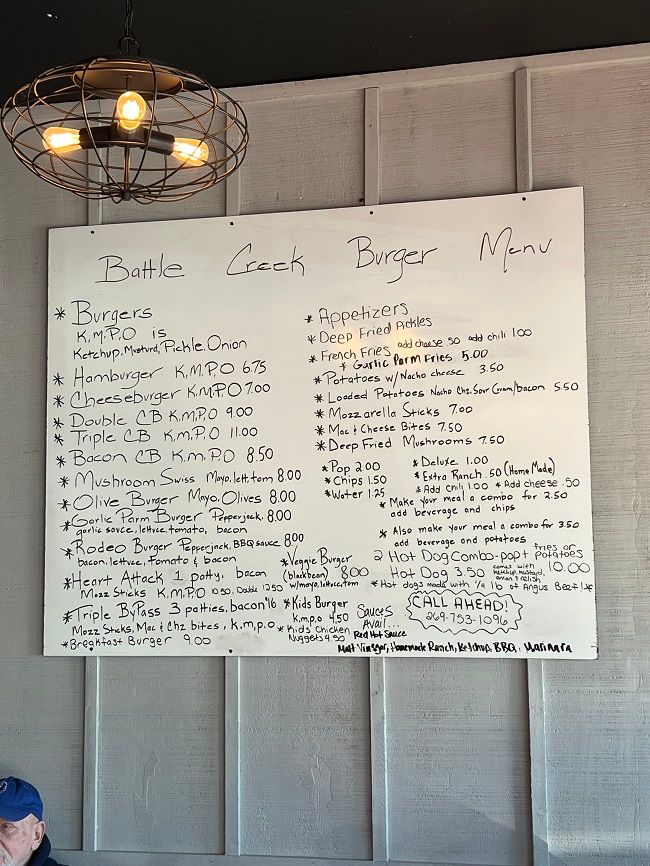 Battle Creek Burger Menu
* Burgers
K,M,P,O is
Ketchup, Mustard, Pickle, Onion
* Hamburger K,M,P,O 6.75
* Cheeseburger K,M,P,O 7.00
* Double CB K,M,P,O 9.00
* Triple CB K,M,P,O 11.00
* Bacon CB K,M,P,O 8.50
* Mushroom Swiss Mayo, lett, tom 8.00
* Olive Burger Mayo, Olives 8.00
* Garlic Parm Burger Pepperjack, 8.00
garlic sauce, lettuce, tomato, bacon
* Rodeo Burger Pepperjack, BBQ sauce 8.00
bacon, lettuce, tomato & bacon
* Heart Attack 1 patty, bacon
Mozz Sticks, K,M,P,O 10.50, Double 12.50
* Triple ByPass 3 patties, bacon 16
Mozz Sticks, Mac & Chz bites, k,m,p,o
* Breakfast Burger 9.00
* Veggie Burger
(blackbean) 8.00
w/mayo, lettuce, tom
* Kids Burger
k,m,p,o 4.50
* Kids Chicken
Nuggets 4.50
* Appetizers
* Deep Fried Pickles
* French Fries add cheese 50 add chili 1.00
* Garlic Parm Fries 5.00
* Potatoes w/ Nacho cheese 3.50
* Loaded Potatoes Nacho Chz, Sour Cream/bacon 5.50
* Mozzarella Sticks 7.00
* Mac & Cheese Bites 7.50
* Deep Fried Mushrooms 7.50
* Pop 2.00
* Chips 1.50
* Water 1.25
* Deluxe 1.00
* Extra Ranch .50 (Home Made)
* Add Chili 1.00 * Add cheese .50
* Make your meal a combo for 2.50
add beverage and chips
* Also make your meal a combo for 3.50
add beverage and potatoes
2 Hot Dog Combo - pop + fries or potatoes
10.00
Hot Dog 3.50 comes with ketchup, mustard, onion & relish
* Hot dogs made with 1/4 lb of Angus Beef
CALL AHEAD!
269-753-1096
Sauces
Avail...
Red Hot Sauce
Malt Vinegar, Homemade Ranch, Ketchup, BBQ, Marinara